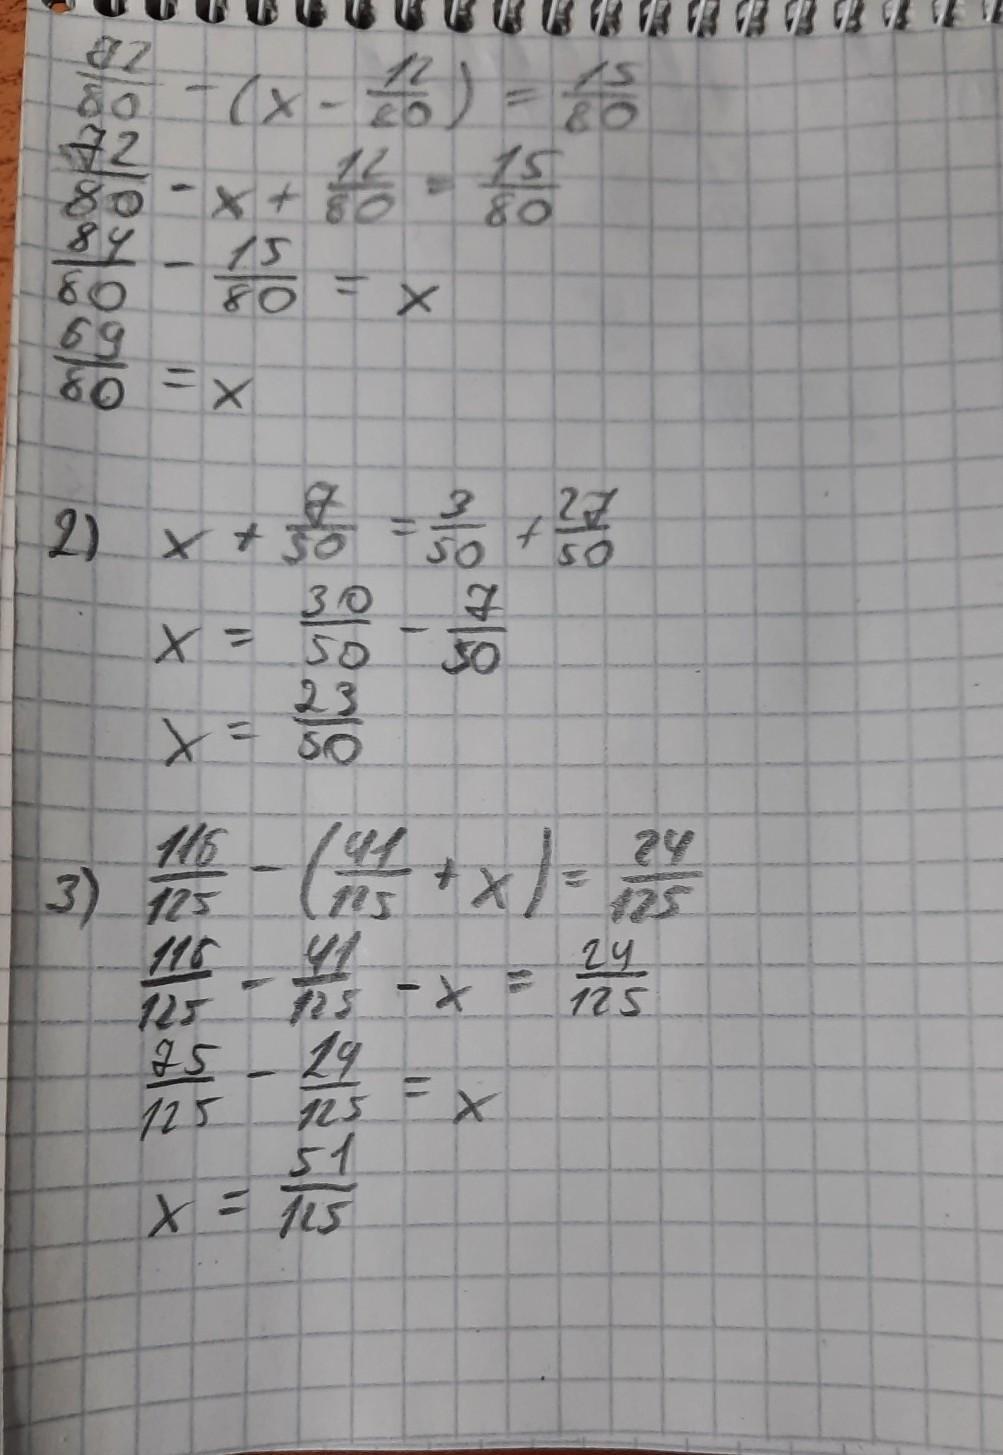 72/80 - (x - 12/80) = 15/80
72/80 - x + 12/80 = 15/80
84/80 - 15/80 = x
69/80 = x
2) x + 7/50 = 3/50 + 27/50
x = 30/50 - 7/50
x = 23/50
3) 116/125 - (41/125 + x) = 24/125
116/125 - 41/125 - x = 24/125
75/125 - 24/125 = x
x = 51/125